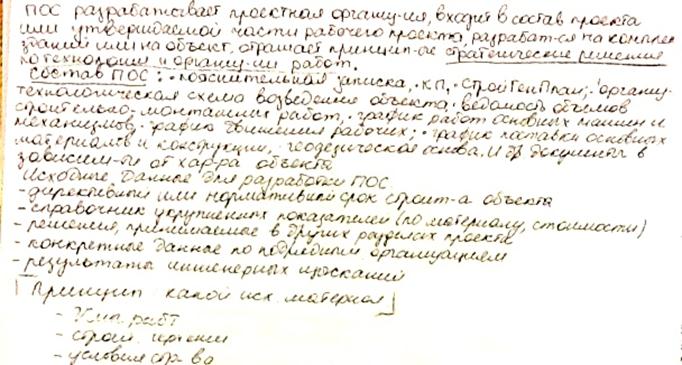 ПОС разрабатывает проектная организ-ия, входит в состав проекта
или утверждаемой части рабочего проекта, разрабат-ся на комплек
зданий или на объект, отражает принцип-ые стратегические решения
по технологии и организ-ии работ.
Состав ПОС: • пояснительная записка, • КП, • СтройГенПлан; • организ-
технологическая схема возведения объекта, • ведомость объемов
строительно-монтажных работ, • график работ основных машин и
механизмов, • график движения рабочих; • график поставки основных
материалов и конструкции, геодезическая основа. И др документы в
зависим-ти от хар-ра объекта
Исходные данные для разработки ПОС
- директивный или нормативный срок строит-а объекта
- справочник укрупненных показателей (по материалу, стоимости)
- решения, принимаемые в других разделах проекта
- конкретные данные по подрядным организациям
- результаты инженерных изысканий
[Принцип какой исх. материал]
- работ
- строй.
- условия стр-ва